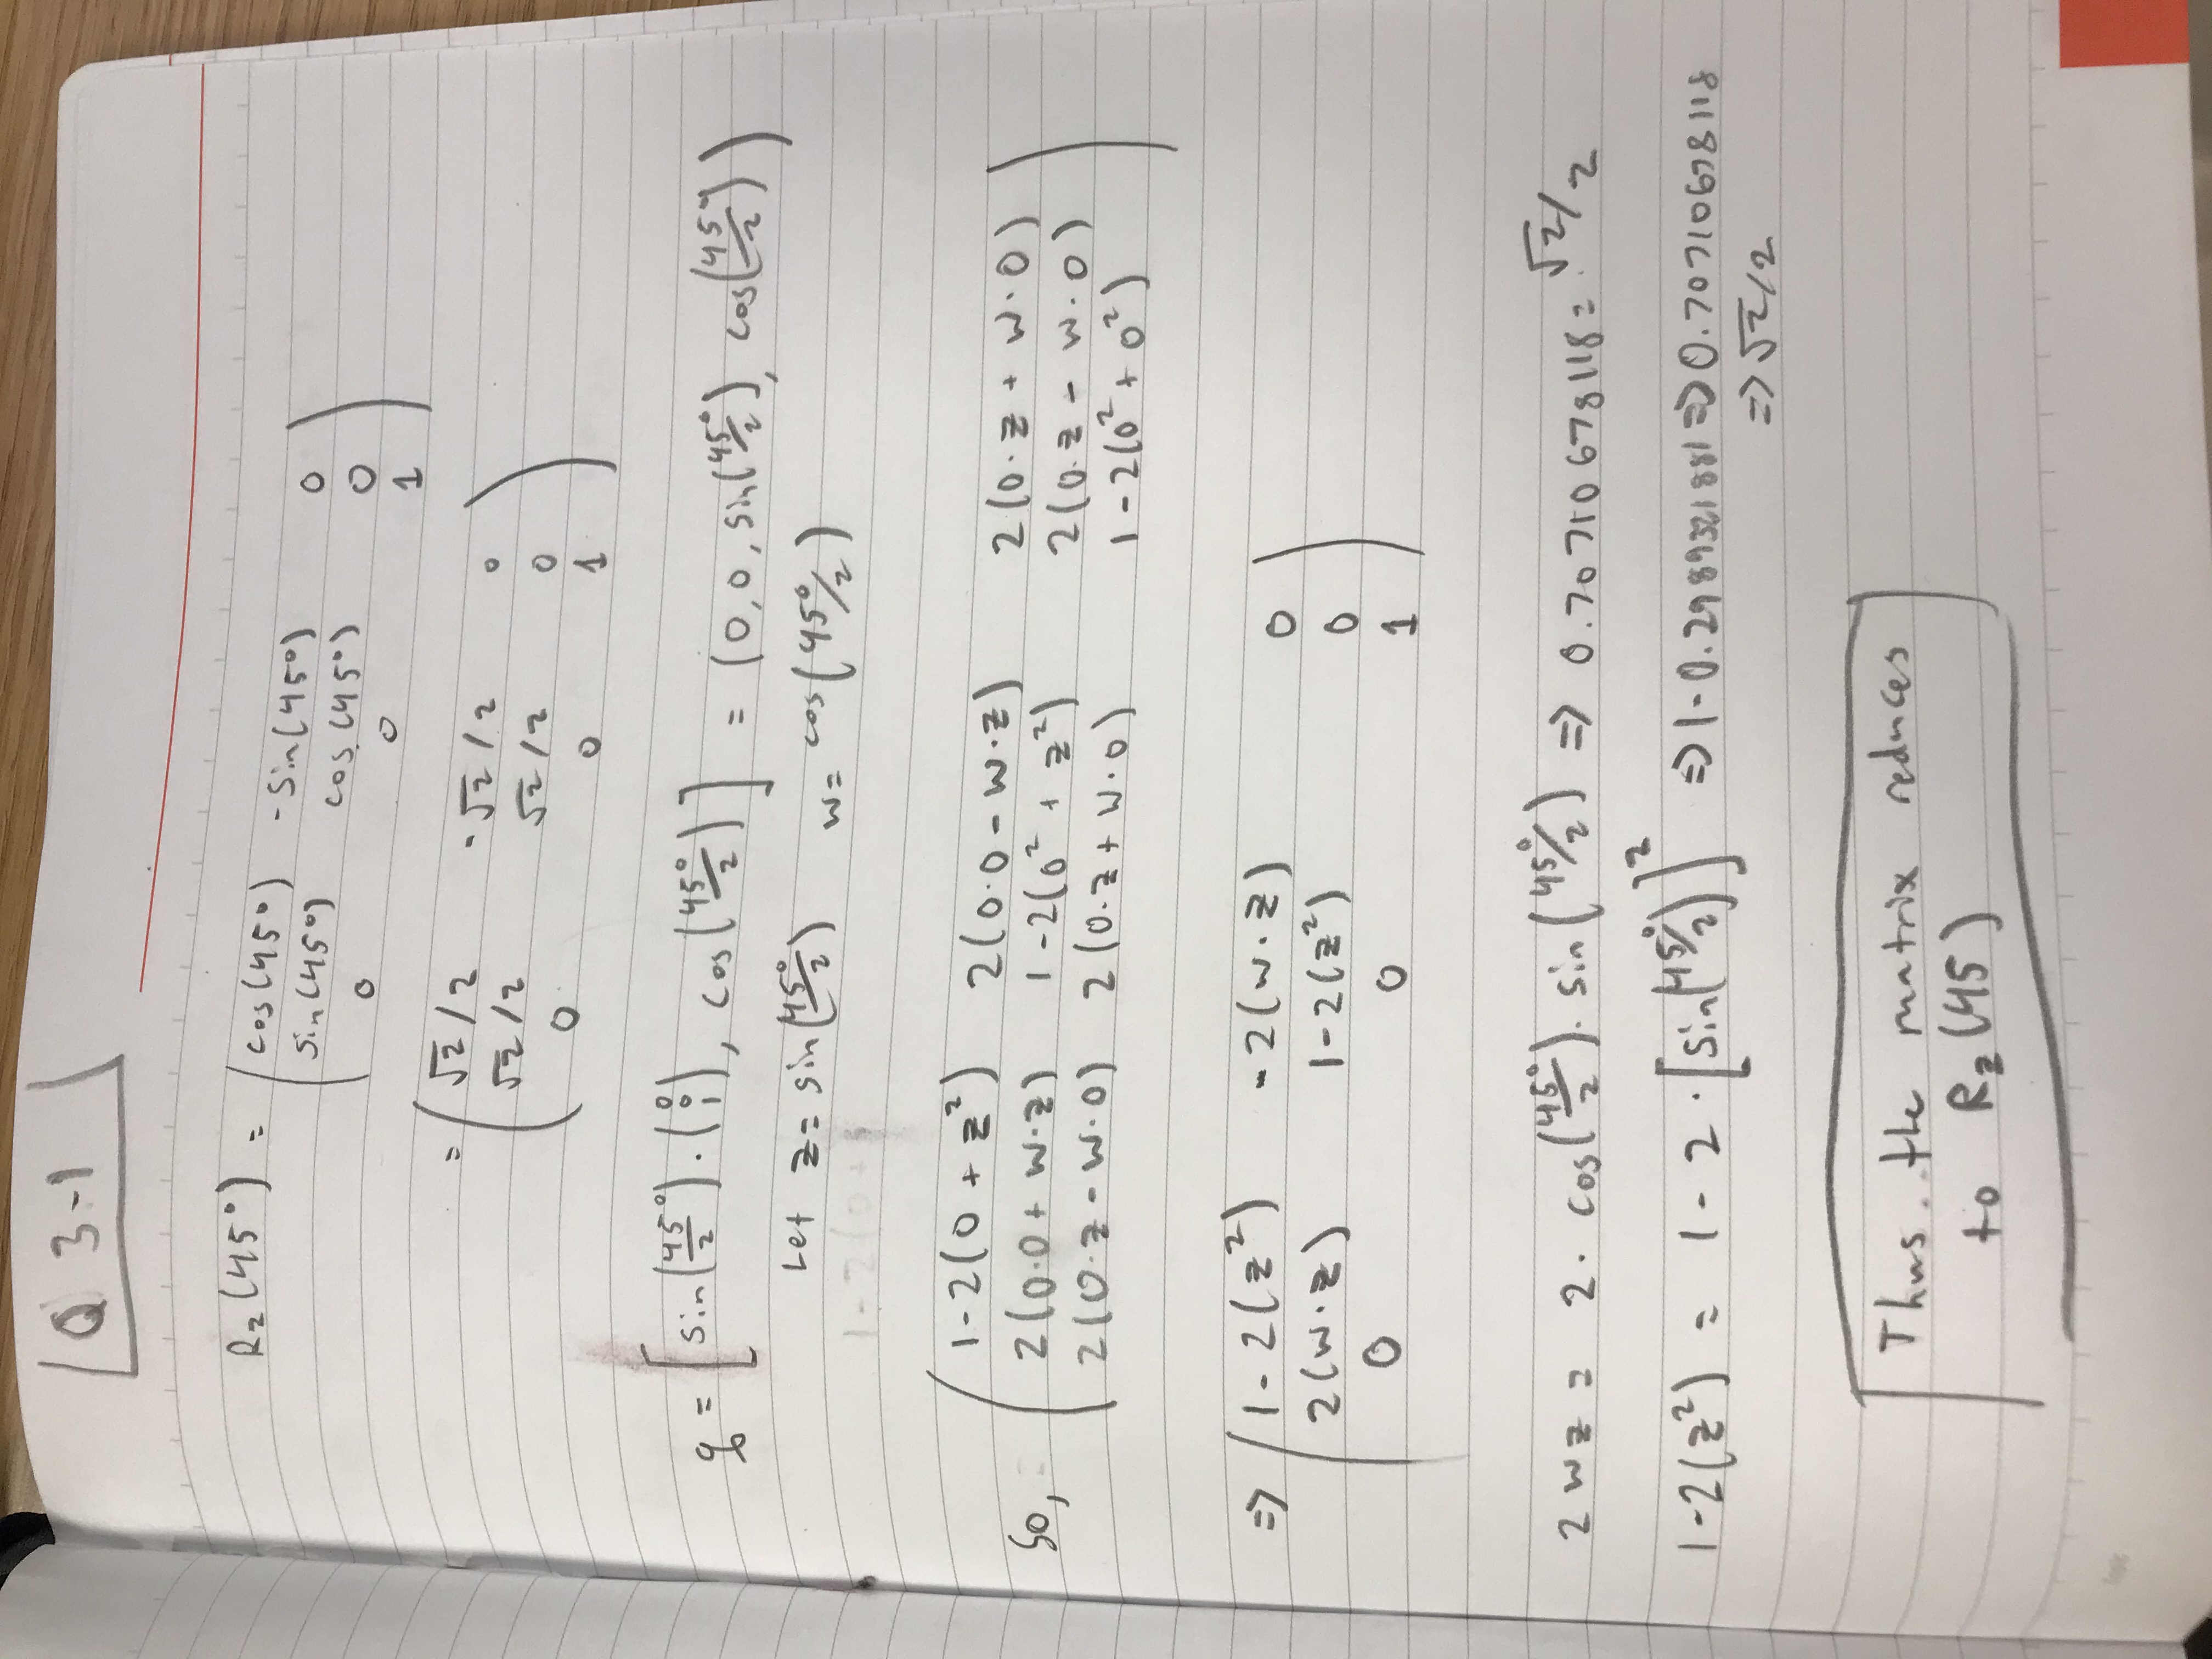 Q 3-1
Rz(45°) = ( cos(45°) -sin(45°) 0
sin(45°) cos(45°) 0
0 0 1 )
= ( √2/2 -√2/2 0
√2/2 √2/2 0
0 0 1 )
q = [ sin(45°/2) · (0 0 1), cos(45°/2) ] = (0, 0, sin(45°/2), cos(45°/2))
Let z = sin(45°/2) w = cos(45°/2)
1-2(0+
So, ( 1-2(0 + z²) 2(0·0 - w·z) 2(0·z + w·0)
2(0·0 + w·z) 1-2(0² + z²) 2(0·z - w·0)
2(0·z - w·0) 2(0·z + w·0) 1-2(0² + 0²) )
=> ( 1-2(z²) -2(w·z) 0
2(w·z) 1-2(z²) 0
0 0 1 )
2wz = 2 · cos(45°/2) · sin(45°/2) => 0.70710678118 = √2/2
1-2(z²) = 1 - 2 · [sin(45°/2)]² => 1 - => 0.70710678118
=> √2/2
Thus. the matrix reduces
to Rz(45)